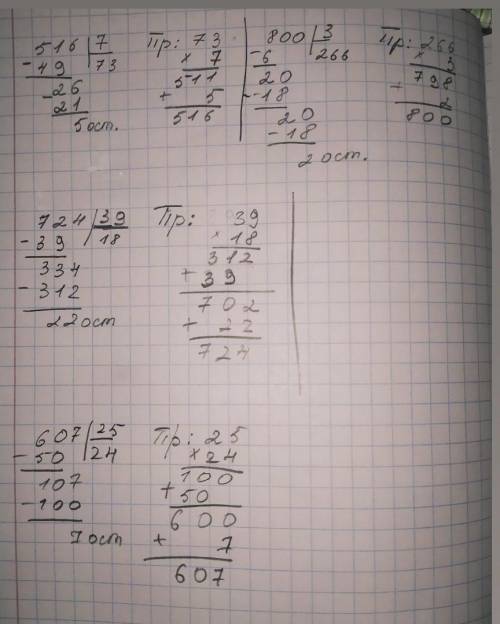 516 | 7
- 49 | 73
26
- 21
5 ост.
Пр: 73
× 7
511
+ 5
516
800 | 3
- 6 | 266
20
- 18
20
- 18
2 ост.
Пр: 266
× 3
798
+ 2
800
724 | 39
- 39 | 18
334
- 312
22 ост
Пр: 39
× 18
312
+ 39
702
+ 22
724
607 | 25
- 50 | 24
107
- 100
7 ост
Пр: 25
× 24
100
+ 50
600
+ 7
607